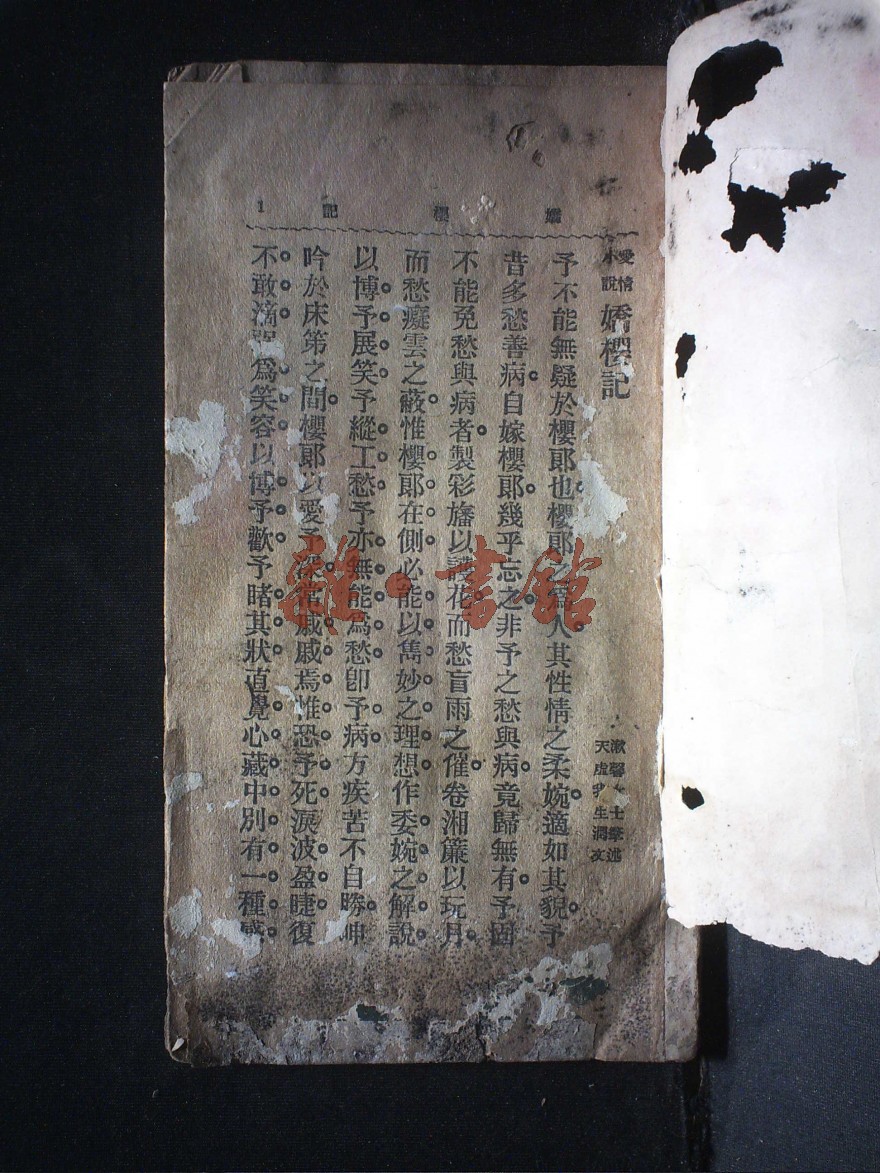 嬌櫻記 1
愛情小說 嬌櫻記
漱馨女士筆述
天虛我生潤文
予不能無疑於櫻郞也櫻郞之爲人其性情之柔婉適如其貌予
昔多愁善病自嫁櫻郞幾乎忘之非予之愁與病竟歸無有予固
不能免愁與病者製彩旛以護花而愁盲雨之催卷湘簾以玩月
而愁癡雲之蔽惟櫻郞在側必能以雋妙之理想作委婉之解說
以博予展笑予縱工愁予亦無能爲愁卽予病方疾苦不自勝呻
吟於床第之間櫻郞以愛予深常戚戚焉惟恐予死淚波盈睫復
不敢滴 爲笑容以博予歡予睹其狀直覺心藏中別有一種感
雜·書館